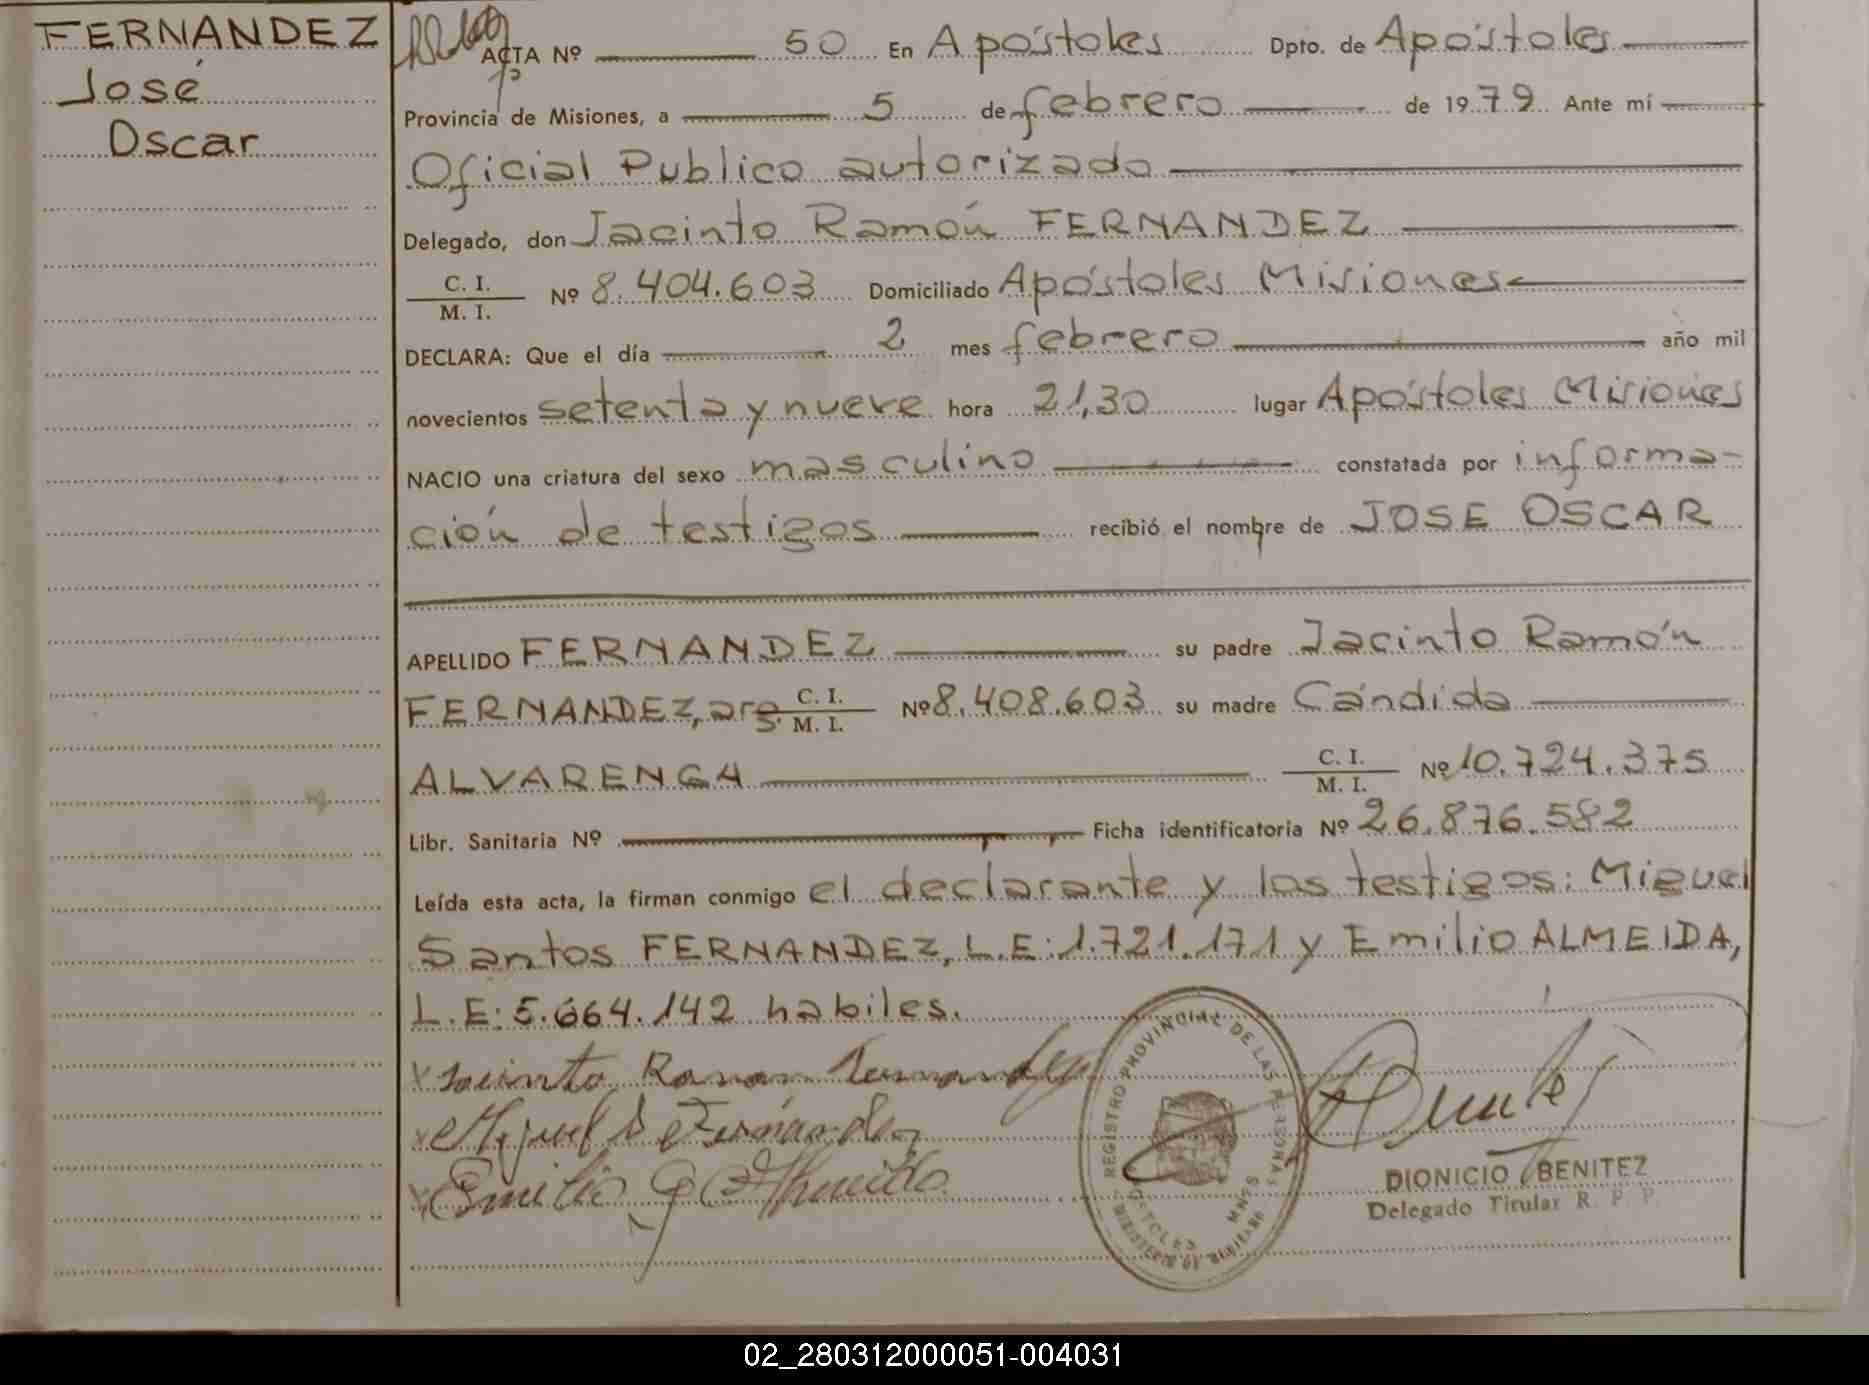 FERNANDEZ
José
Oscar
ACTA Nº 50 En Apóstoles Dpto. de Apóstoles
Provincia de Misiones, a 5 de febrero de 1979 Ante mí
Oficial Publico autorizado
Delegado, don Jacinto Ramón FERNANDEZ
C. I.
M. I. Nº 8.404.603 Domiciliado Apóstoles Misiones
DECLARA: Que el día 2 mes febrero año mil
novecientos setenta y nueve hora 21,30 lugar Apóstoles Misiones
NACIO una criatura del sexo masculino constatada por informa-
ción de testigos recibió el nombre de JOSE OSCAR
APELLIDO FERNANDEZ su padre Jacinto Ramón
FERNANDEZ, arg. C. I. M. I. Nº 8.408.603 su madre Cándida
ALVARENGA C. I. M. I. Nº 10.724.375
Libr. Sanitaria Nº Ficha identificatoria Nº 26.876.582
Leída esta acta, la firman conmigo el declarante y los testigos: Miguel
Santos FERNANDEZ, L.E: 1.721.171 y Emilio ALMEIDA,
L.E: 5.664.142 habiles.
x Jacinto Ramon Fernandez
x Miguel S Fernández
x Emilio G Almeida
REGISTRO PROVINCIAL DE LAS PERSONAS
MINISTERIO DE GOBIERNO
APOSTOLES MNES
DIONICIO BENITEZ
Delegado Titular R. P. P.
02_280312000051-004031